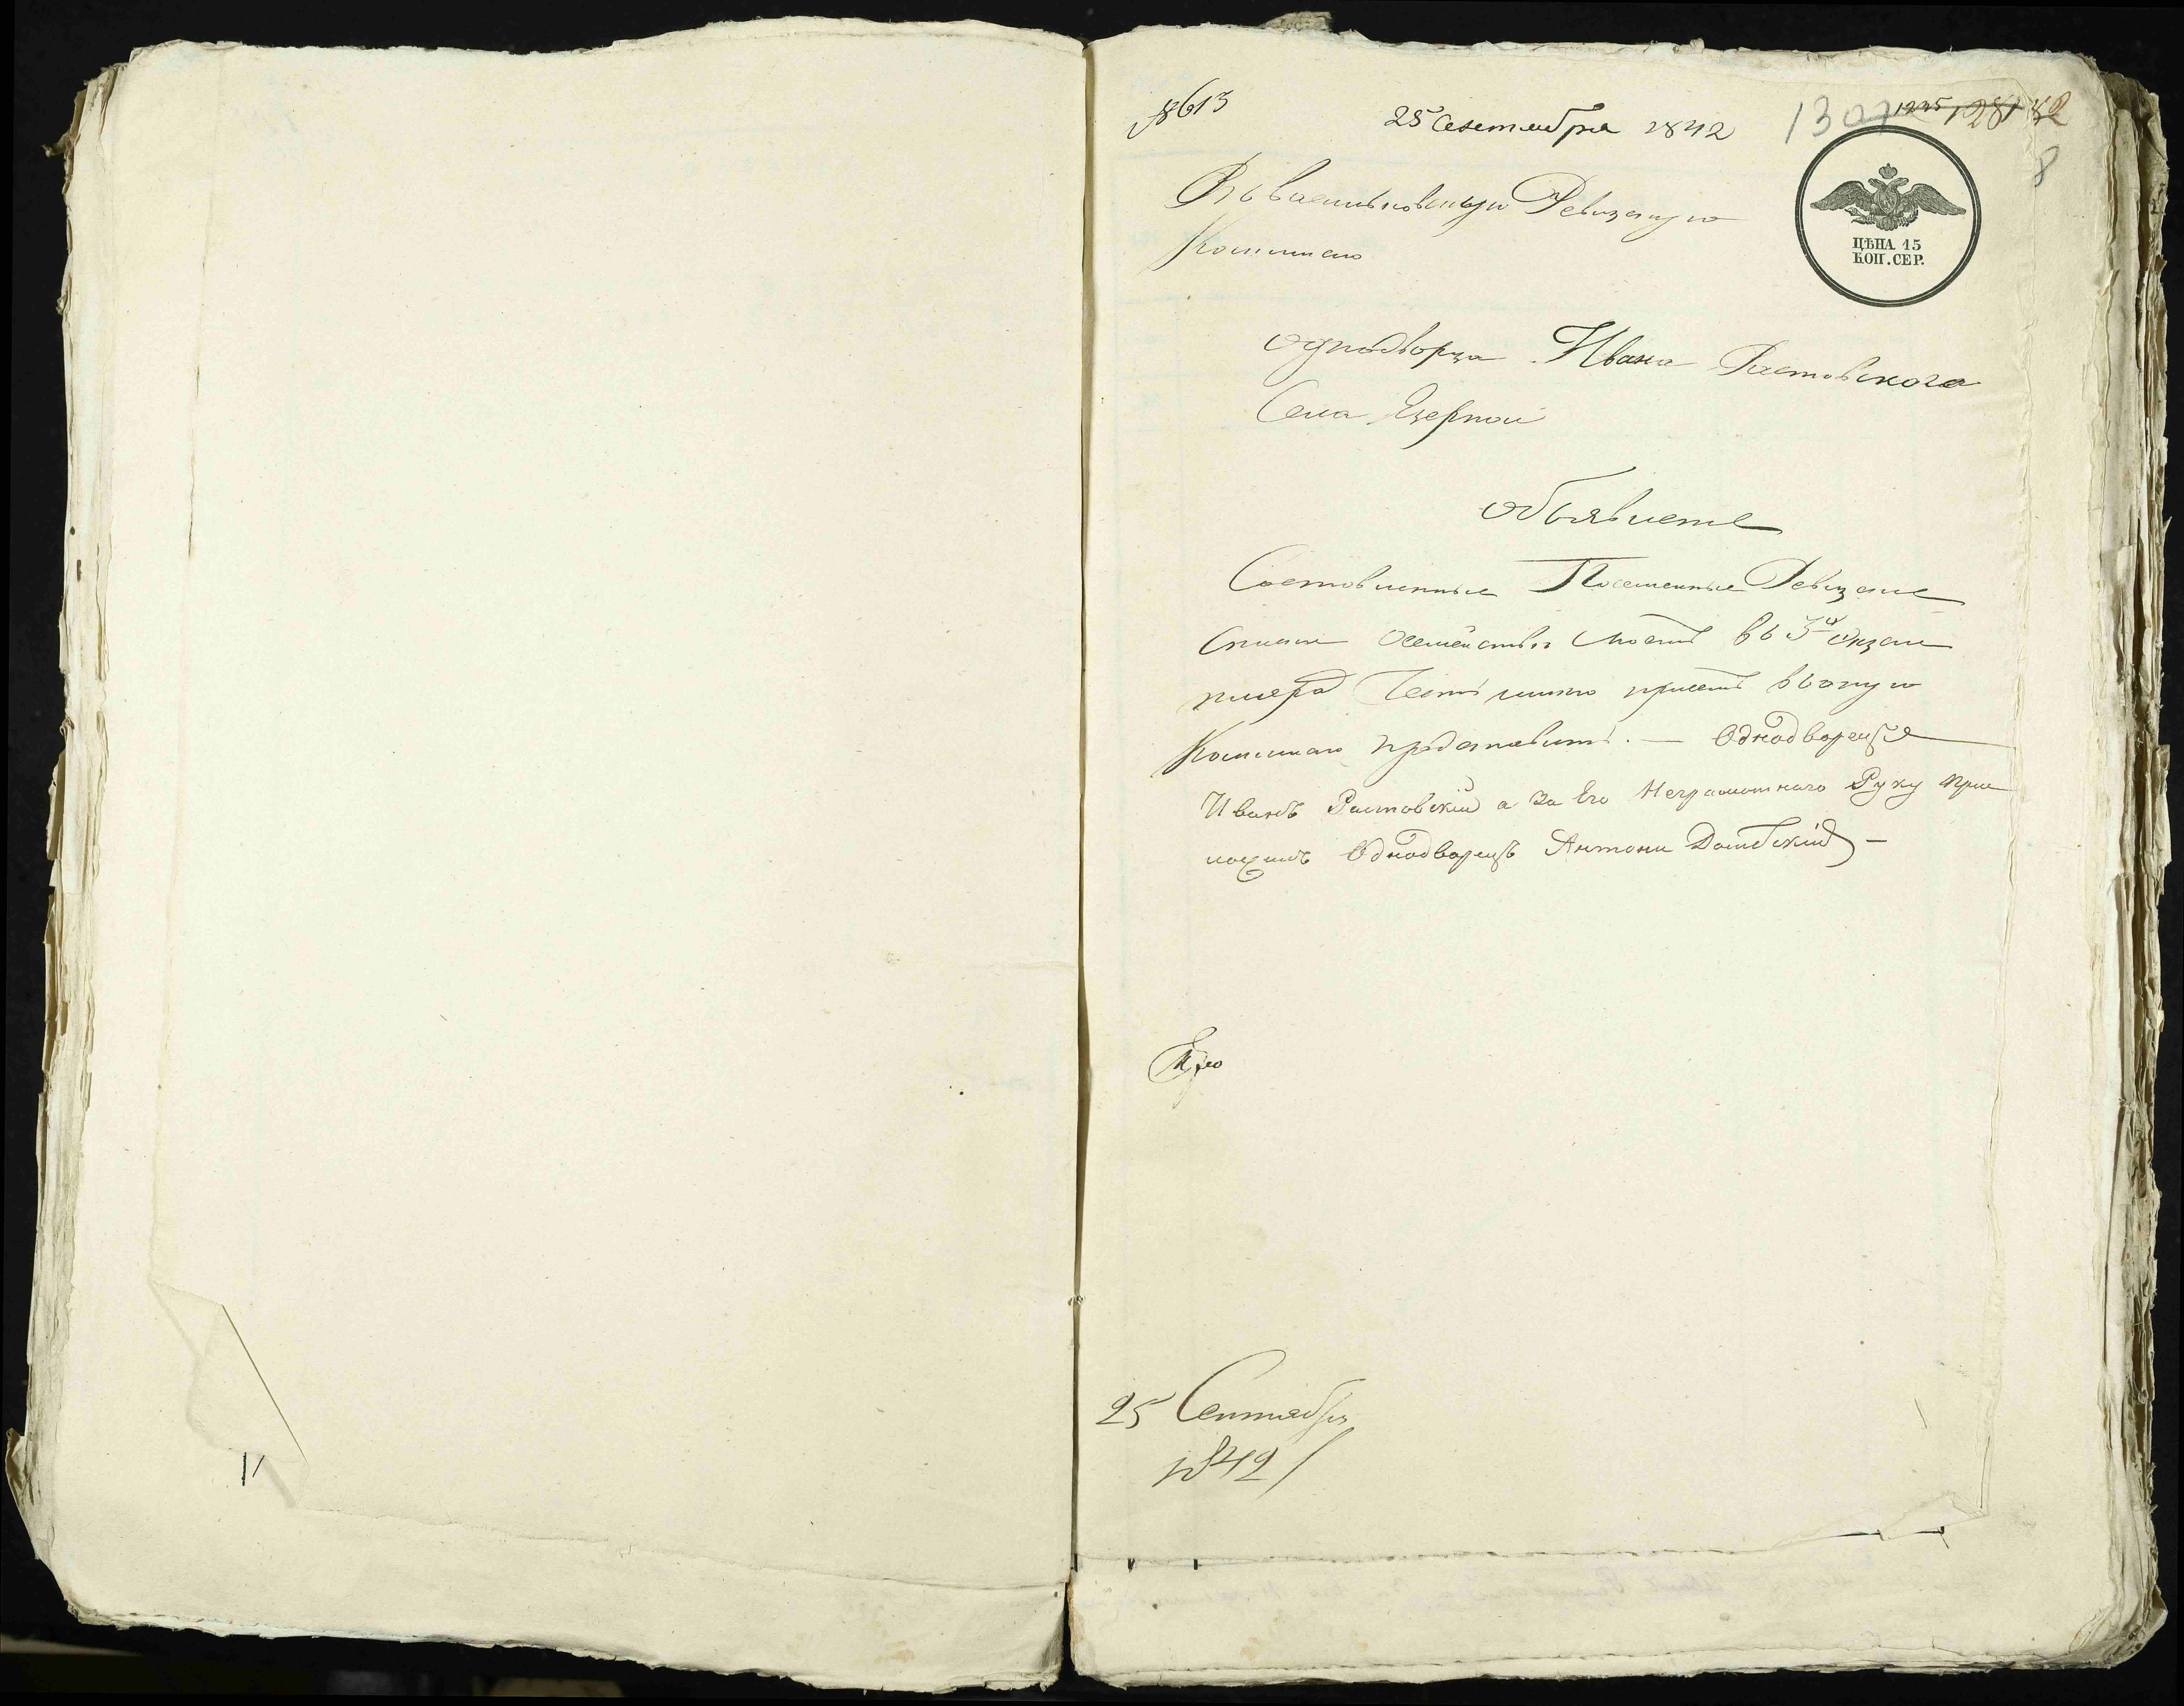 8613
25 Сентября 1842
1307 1225 1281 82
8
Въ Васильковскую Ревизную
Комисию
ЦѢНА 15
КОП. СЕР.
однодворца Ивана Растовского
Села Езерной
объявление
Составленные Посемейные Ревизские
Списки семейства моего въ 3х экзем
пляра Честь имею при семъ въ оную
Комисию представить. — Однодворецъ
Иванъ Растовский а за Его Неграмотного Руку при
ложилъ Однодворецъ Антони Домбский —
25 Сентября
1842